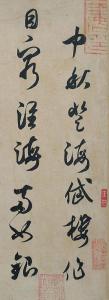 中秋登海岱樓作
目窮淮海兩如銀